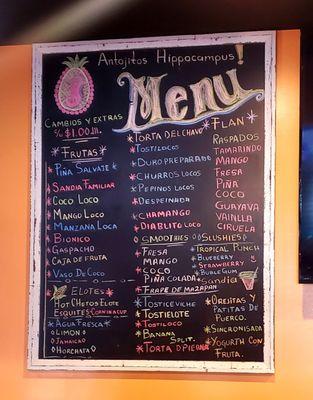 Antojitos Hippocampus!
Menu
Cambios y extras
$1.00
*Frutas*
*Piña Salvaje*
*Sandia Familiar
*Coco Loco
*Mango Loco
*Manzana Loca
*Bionico
*Gaspacho
*Caja de Fruta
*Vaso de Coco
*Elotes*
*Hot Chetos Elote
Esquites: Corn in a cup
*Agua Fresca*
Limon
Jamaica
Horchata
*Torta del Chavo*
*Tostilocos
*Duro Preparado
*Churros Locos
*Pepinos Locos
*Despeinada
*Chamango
*Diablito Loco
Smoothies
*Fresa
Mango
Coco
Piña Colada
*Frape de Mazapan
*Tosticeviche
*Tostielote
*Tostiloco
*Banana
Split.
*Torta D'Pierna
*Flan*
Raspados
Tamarindo
Mango
Fresa
Piña
Coco
Guayava
Vainilla
Ciruela
Slushies
*Tropical Punch
*Blueberry
*Strawberry
*Bublegum
*Sandia
*Orejitas y
Patitas de
Puerco.
*Sincronisada
*Yogurth con
Fruta.